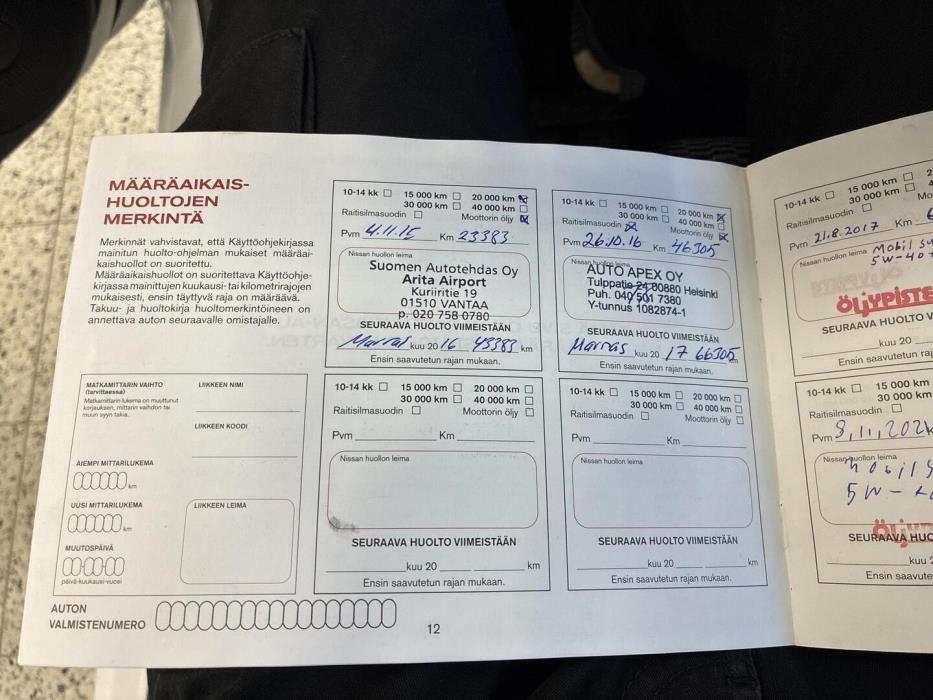 MÄÄRÄAIKAIS-
HUOLTOJEN
MERKINTÄ
Merkinnät vahvistavat, että Käyttöohjekirjassa
mainitun huolto-ohjelman mukaiset määräai-
kaishuollot on suoritettu.
Määräaikaishuollot on suoritettava Käyttöohje-
kirjassa mainittujen kuukausi- tai kilometrirajojen
mukaisesti, ensin täyttyvä raja on määräävä.
Takuu- ja huoltokirja huoltomerkintöineen on
annettava auton seuraavalle omistajalle.
MATKAMITTARIN VAIHTO
(tarvittaessa)
Matkamittarin lukema on muuttunut
korjauksen, mittarin vaihdon tai
muun syyn takia.
AIEMPI MITTARILUKEMA
km
UUSI MITTARILUKEMA
km
MUUTOSPÄIVÄ
päivä-kuukausi-vuosi
LIIKKEEN NIMI
LIIKKEEN KOODI
LIIKKEEN LEIMA
AUTON
VALMISTENUMERO
12
10-14 kk 15 000 km 20 000 km
30 000 km 40 000 km
Raitisilmasuodin Moottorin öljy
Pvm 4.11.15 Km 23383
Nissan huollon leima
Suomen Autotehdas Oy
Arita Airport
Kuriiritie 19
01510 VANTAA
p. 020 758 0780
SEURAAVA HUOLTO VIIMEISTÄÄN
Marras kuu 20 16 43383 km
Ensin saavutetun rajan mukaan.
10-14 kk 15 000 km 20 000 km
30 000 km 40 000 km
Raitisilmasuodin Moottorin öljy
Pvm 26.10.16 Km 46305
Nissan huollon leima
AUTO APEX OY
Tulppatie 24 00880 Helsinki
Puh. 040 501 7380
Y-tunnus 1082874-1
SEURAAVA HUOLTO VIIMEISTÄÄN
Marras kuu 20 17 66305 km
Ensin saavutetun rajan mukaan.
10-14 kk 15 000 km 20 000 km
30 000 km 40 000 km
Raitisilmasuodin Moottorin öljy
Pvm Km
Nissan huollon leima
SEURAAVA HUOLTO VIIMEISTÄÄN
kuu 20 km
Ensin saavutetun rajan mukaan.
10-14 kk 15 000 km 20 000 km
30 000 km 40 000 km
Raitisilmasuodin Moottorin öljy
Pvm Km
Nissan huollon leima
SEURAAVA HUOLTO VIIMEISTÄÄN
kuu 20 km
Ensin saavutetun rajan mukaan.
10-14 kk 15 000 km 2
30 000 km 4
Raitisilmasuodin Mo
Pvm 21.8.2017 Km 6
Nissan huollon leima Mobil su
5W-40
ÖLJYPISTE
SEURAAVA HUOLTO V
kuu 20
Ensin saavutetun raja
10-14 kk 15 000 km
30 000 km
Raitisilmasuodin
Pvm 8,11,202
Nissan huollon leima
Mobil S
5W-4
ÖLJYP
SEURAAVA HUO
kuu 2
Ensin saavute